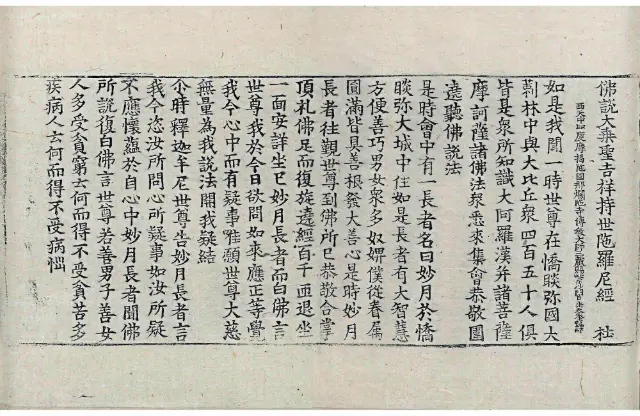 佛說大乘聖吉祥持世陁羅尼經 杜
西天中印度摩揭陁國那爛陁寺傳教大師三藏賜紫沙門臣法天奉詔譯
如是我聞一時世尊在憍睒弥國大
荊林中與大比丘衆四百五十人俱
皆是衆所知識大阿羅漢并諸菩薩
摩訶薩諸佛法衆悉來集會恭敬圍
遶聽佛說法
是時會中有一長者名曰妙月於憍
睒弥大城中住如是長者有大智慧
方便善巧男女衆多奴婢僕從眷屬
圓滿皆具善根發大善心是時妙月
長者往覲世尊到佛所已恭敬合掌
頂礼佛足而復旋遶經百千匝退坐
一面安詳坐已妙月長者而白佛言
世尊我於今日欲問如來應正等覺
我今心中而有疑事唯願世尊大慈
無量為我說法開我疑結
尒時釋迦牟尼世尊告妙月長者言
我今恣汝所問心所疑事如汝所疑
不應懷蘊於自心中妙月長者聞佛
所說復白佛言世尊若善男子善女
人多受貧窮云何而得不受貧苦多
疾病人云何而得不受病惱